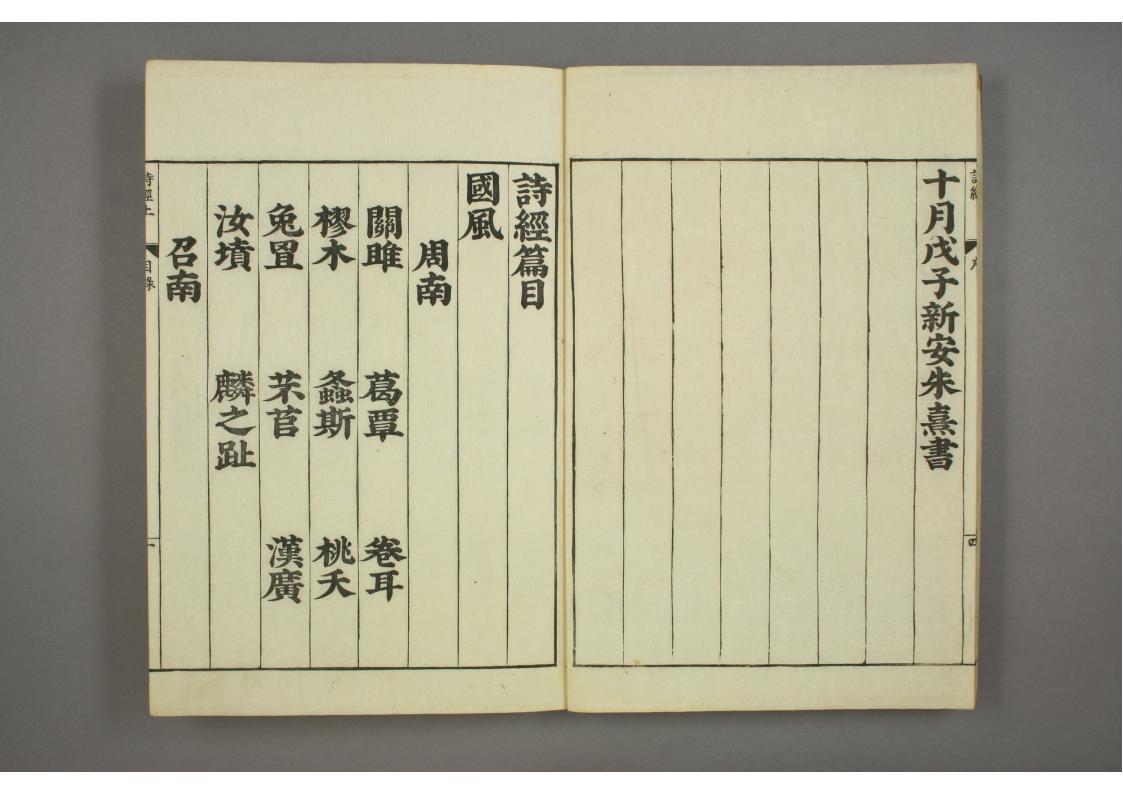 十月戊子新安朱熹書
四
詩經篇目
國風
周南
關雎 葛覃 卷耳
樛木 螽斯 桃夭
兔罝 芣苢 漢廣
汝墳 麟之趾
召南
詩經上 目錄 一